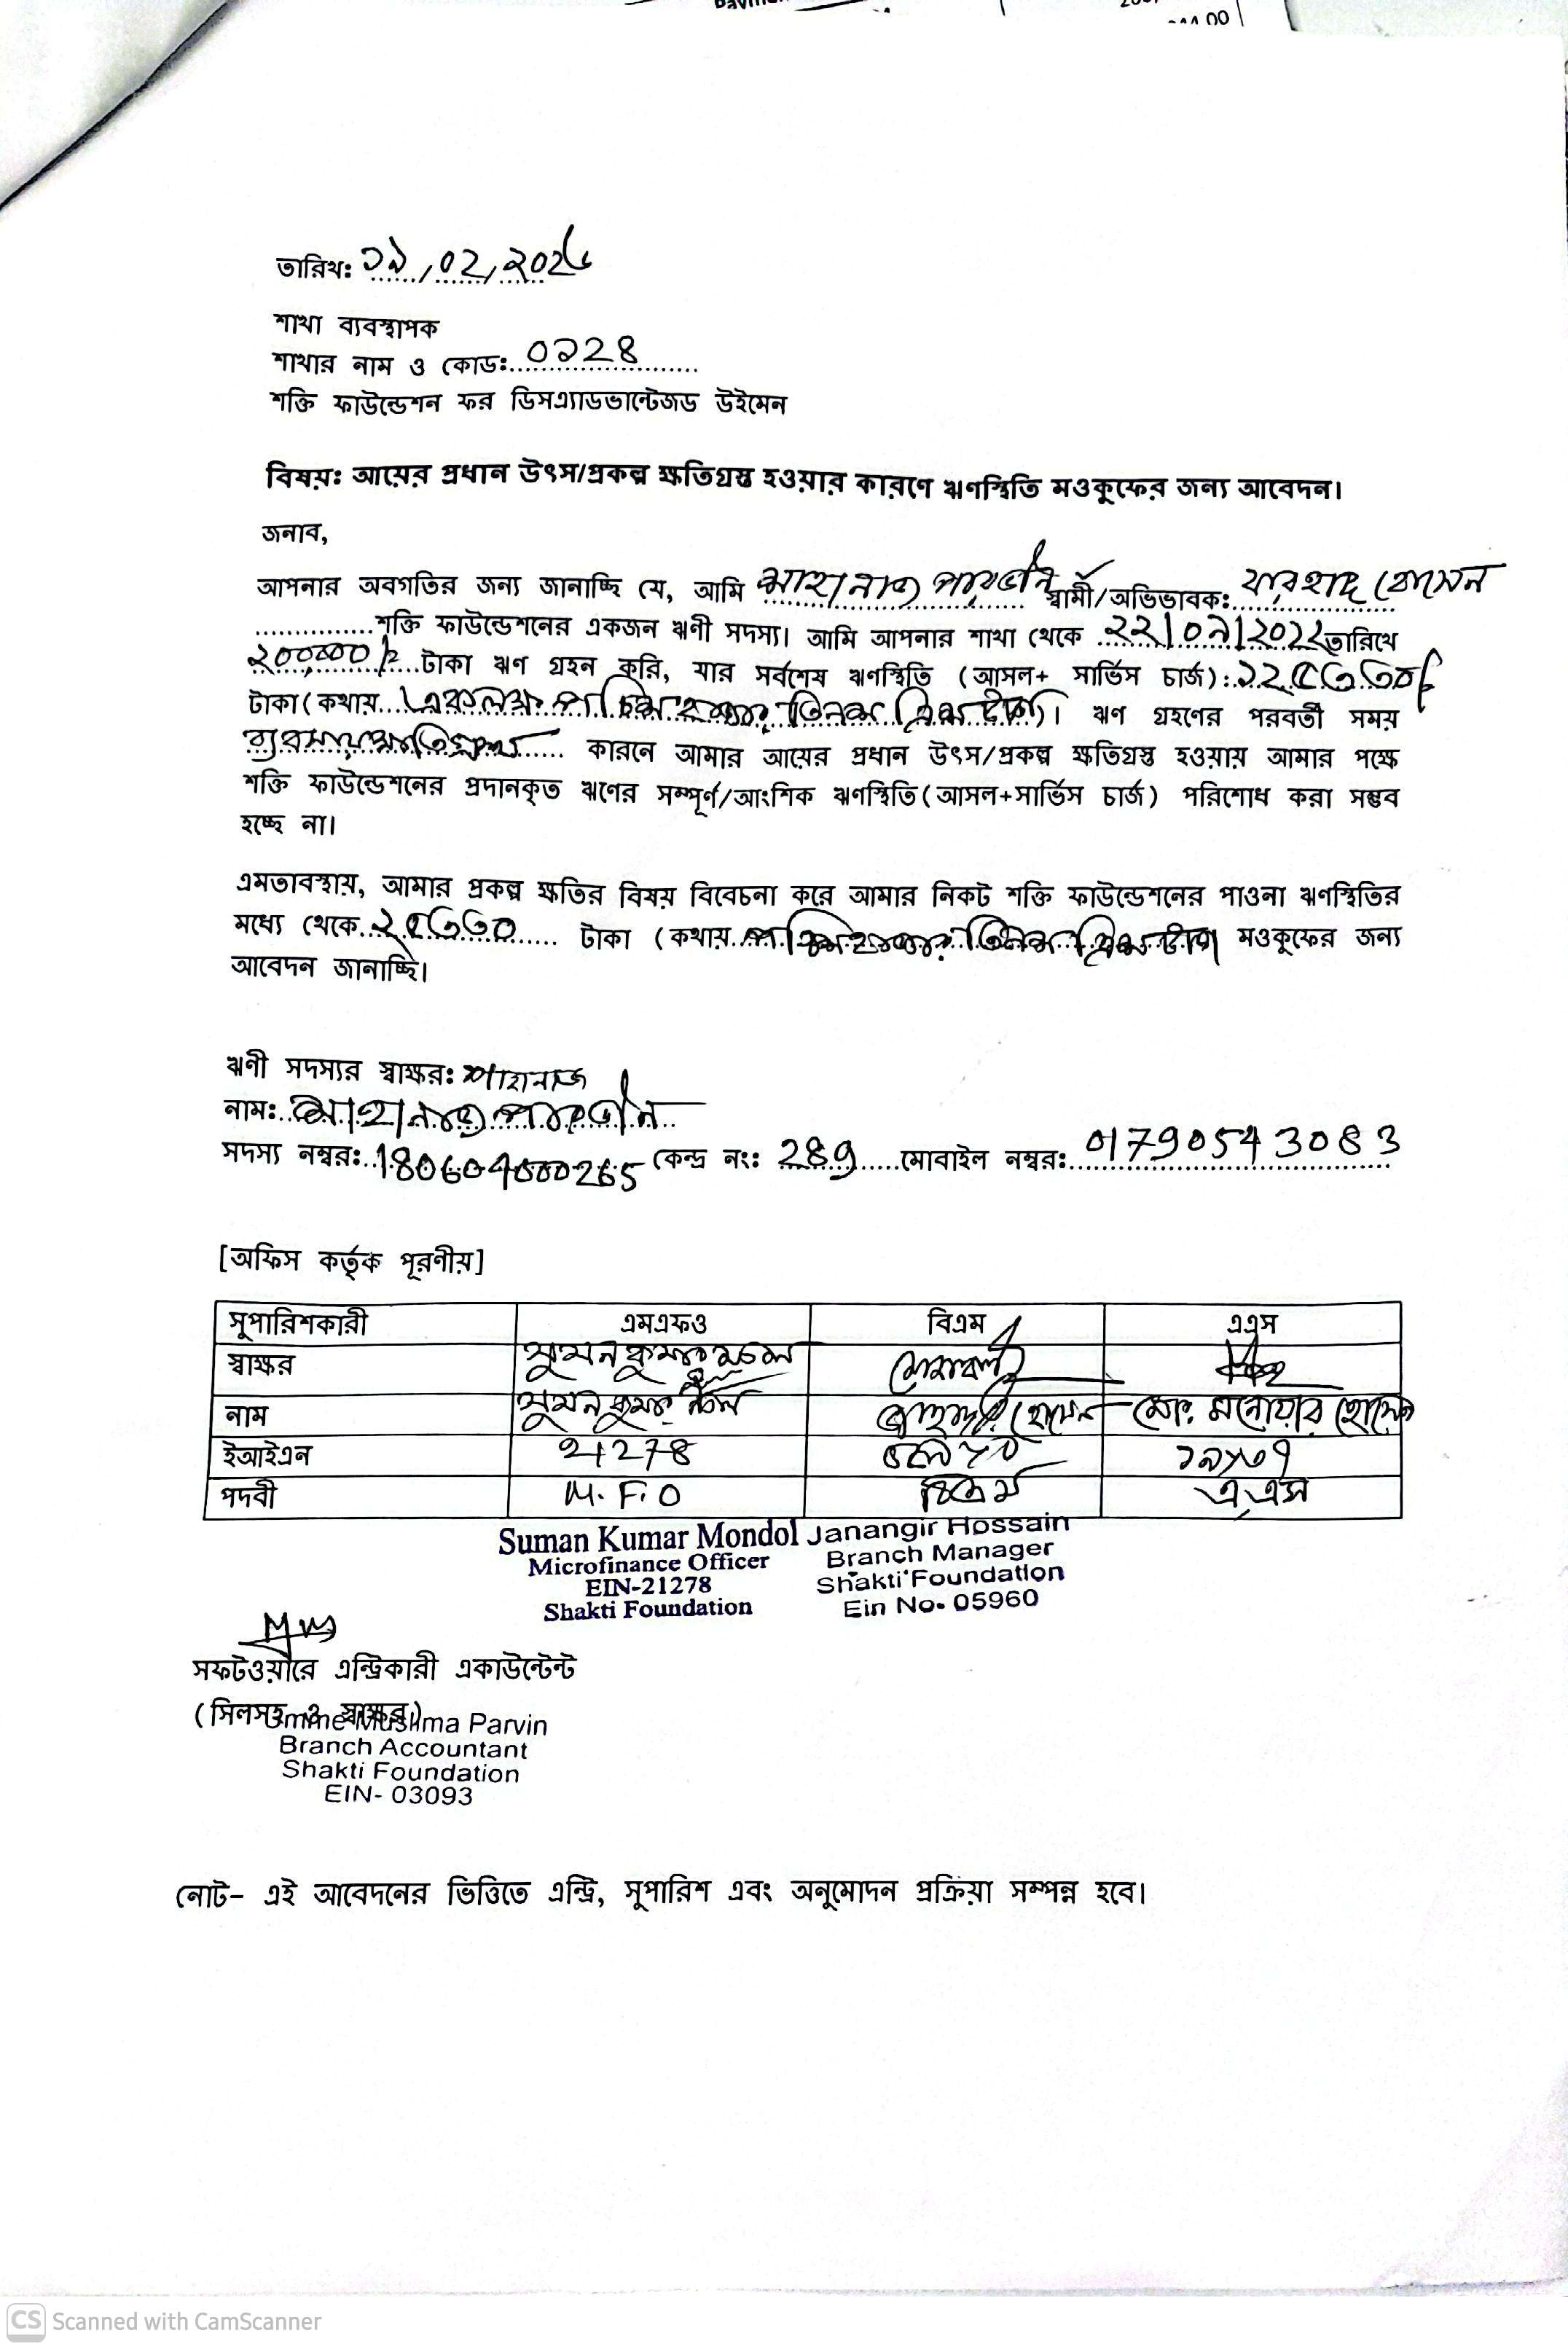 তারিখঃ ১৯/০২/২০২৬
শাখা ব্যবস্থাপক
শাখার নাম ও কোডঃ 0228
শক্তি ফাউন্ডেশন ফর ডিসএ্যাডভান্টেজড উইমেন
বিষয়ঃ আয়ের প্রধান উৎস/প্রকল্প ক্ষতিগ্রস্ত হওয়ার কারণে ঋণস্থিতি মওকুফের জন্য আবেদন।
জনাব,
আপনার অবগতির জন্য জানাচ্ছি যে, আমি শাহানাজ পারভীন স্বামী/অভিভাবকঃ ফরহাদ হোসেন
শক্তি ফাউন্ডেশনের একজন ঋণী সদস্য। আমি আপনার শাখা থেকে তারিখে
২০০,০০০/= টাকা ঋণ গ্রহন করি, যার সর্বশেষ ঋণস্থিতি (আসল+ সার্ভিস চার্জ):
টাকা (কথায় একলক্ষ পচিশ হাজার তিনশত ত্রিশ টাকা)। ঋণ গ্রহণের পরবর্তী সময়
ব্যবসায় ক্ষতিগ্রস্ত কারনে আমার আয়ের প্রধান উৎস/প্রকল্প ক্ষতিগ্রস্ত হওয়ায় আমার পক্ষে
শক্তি ফাউন্ডেশনের প্রদানকৃত ঋণের সম্পূর্ণ/আংশিক ঋণস্থিতি (আসল+সার্ভিস চার্জ) পরিশোধ করা সম্ভব
হচ্ছে না।
এমতাবস্থায়, আমার প্রকল্প ক্ষতির বিষয় বিবেচনা করে আমার নিকট শক্তি ফাউন্ডেশনের পাওনা ঋণস্থিতির
মধ্যে থেকে ২৫৩৩০ টাকা (কথায় পচিশ হাজার তিনশত ত্রিশ টাকা মওকুফের জন্য
আবেদন জানাচ্ছি।
ঋণী সদস্যর স্বাক্ষরঃ শাহানাজ
নামঃ শাহানাজ পারভীন
সদস্য নম্বরঃ 180604000265 কেন্দ্র নংঃ 289 মোবাইল নম্বরঃ 01790543083
[অফিস কর্তৃক পূরণীয়]
সুপারিশকারী এমএফও বিএম এএস
স্বাক্ষর সুমন কুমার মন্ডল
নাম সুমন কুমার মন্ডল জাহাঙ্গীর হোসেন মোঃ মনোয়ার হোসেন
ইআইএন 21278
পদবী M.F.O বিএম এ,এস
Suman Kumar Mondol Janangir Hossain
Microfinance Officer Branch Manager
EIN-21278 Shakti Foundation
Shakti Foundation Ein No. 05960
সফটওয়ারে এন্ট্রিকারী একাউন্টেন্ট
(সিলসহ ও স্বাক্ষর)
Umme Muslima Parvin
Branch Accountant
Shakti Foundation
EIN- 03093
নোট– এই আবেদনের ভিত্তিতে এন্ট্রি, সুপারিশ এবং অনুমোদন প্রক্রিয়া সম্পন্ন হবে।
CS Scanned with CamScanner